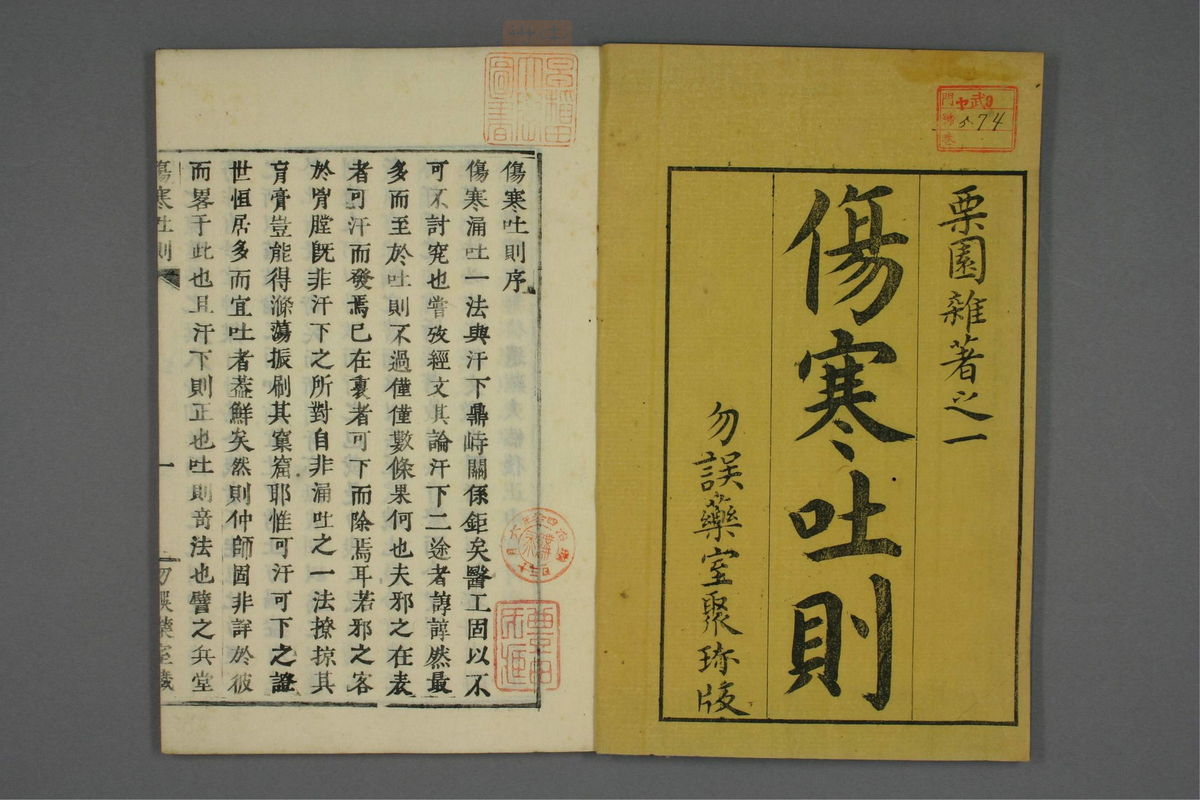 栗園雜著之一
傷寒吐則
勿誤藥室聚珍版
門ヤ武9
574
傷寒吐則序
傷寒涌吐一法與汗下鼎峙關係鉅矣醫工固以不
可不討究也嘗攷經文其論汗下二途者諄諄然最
多而至於吐則不過僅僅數條果何也夫邪之在表
者可汗而發焉已在裏者可下而除焉耳若邪之客
於胷膛旣非汗下之所對自非涌吐之一法撩掠其
肓膏豈能得滌蕩振刷其窠窟耶惟可汗可下之證
世恒居多而宜吐者葢鮮矣然則仲師固非詳於彼
而畧于此也且汗下則正也吐則竒法也譬之兵堂
傷寒吐則
一
勿誤藥室藏